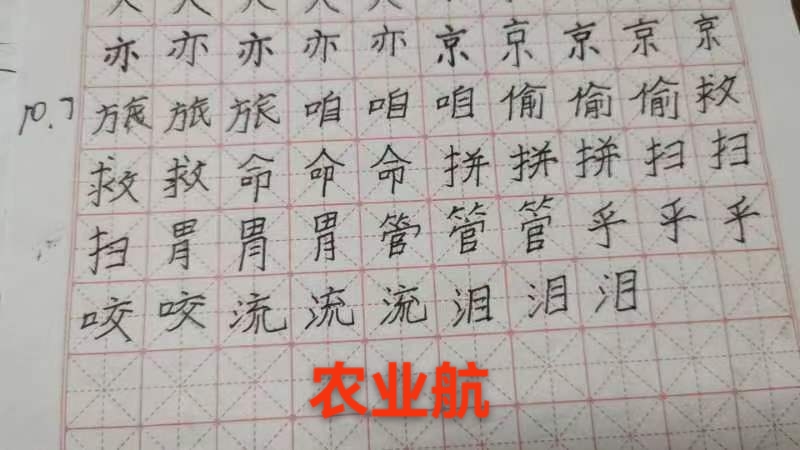 亦亦亦亦亦京京京京京
10.7
旅旅旅咱咱咱偷偷偷救
救救命命命拼拼拼扫扫
扫胃胃胃管管管乎乎乎
咬咬流流流泪泪泪
农业航